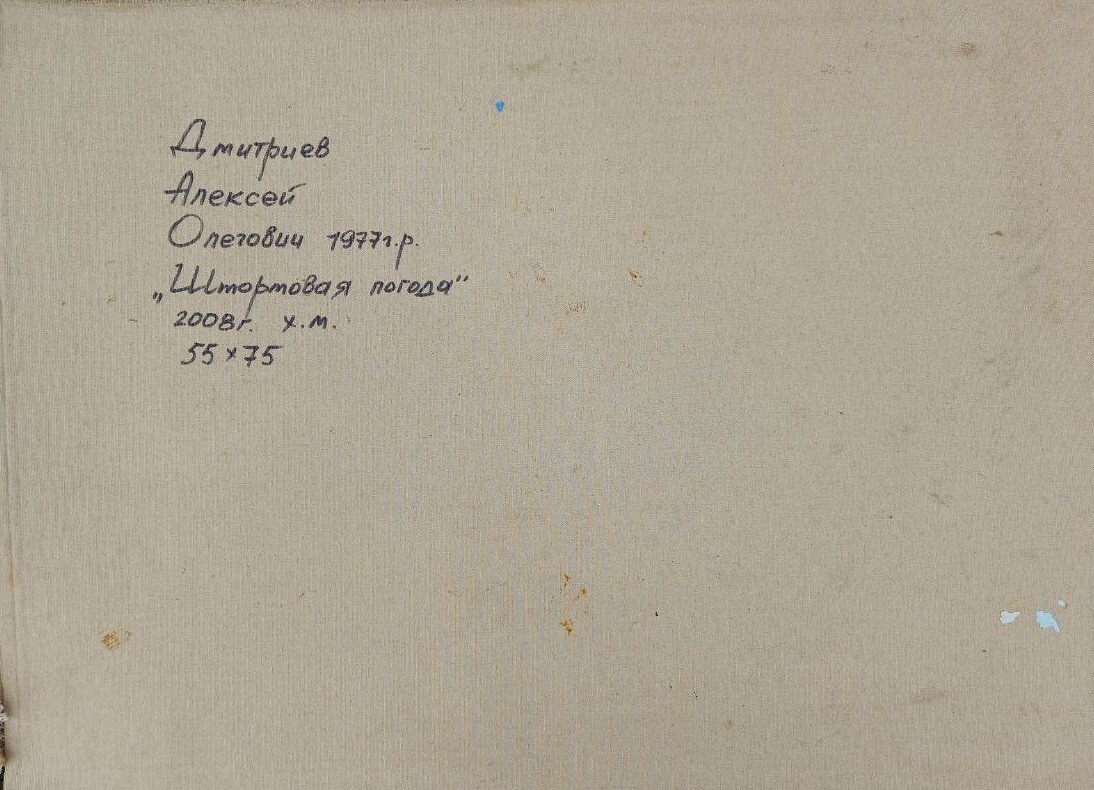 Дмитриев
Алексей
Олегович 1977г.р.
„Штормовая погода"
2008г. х.м.
55×75